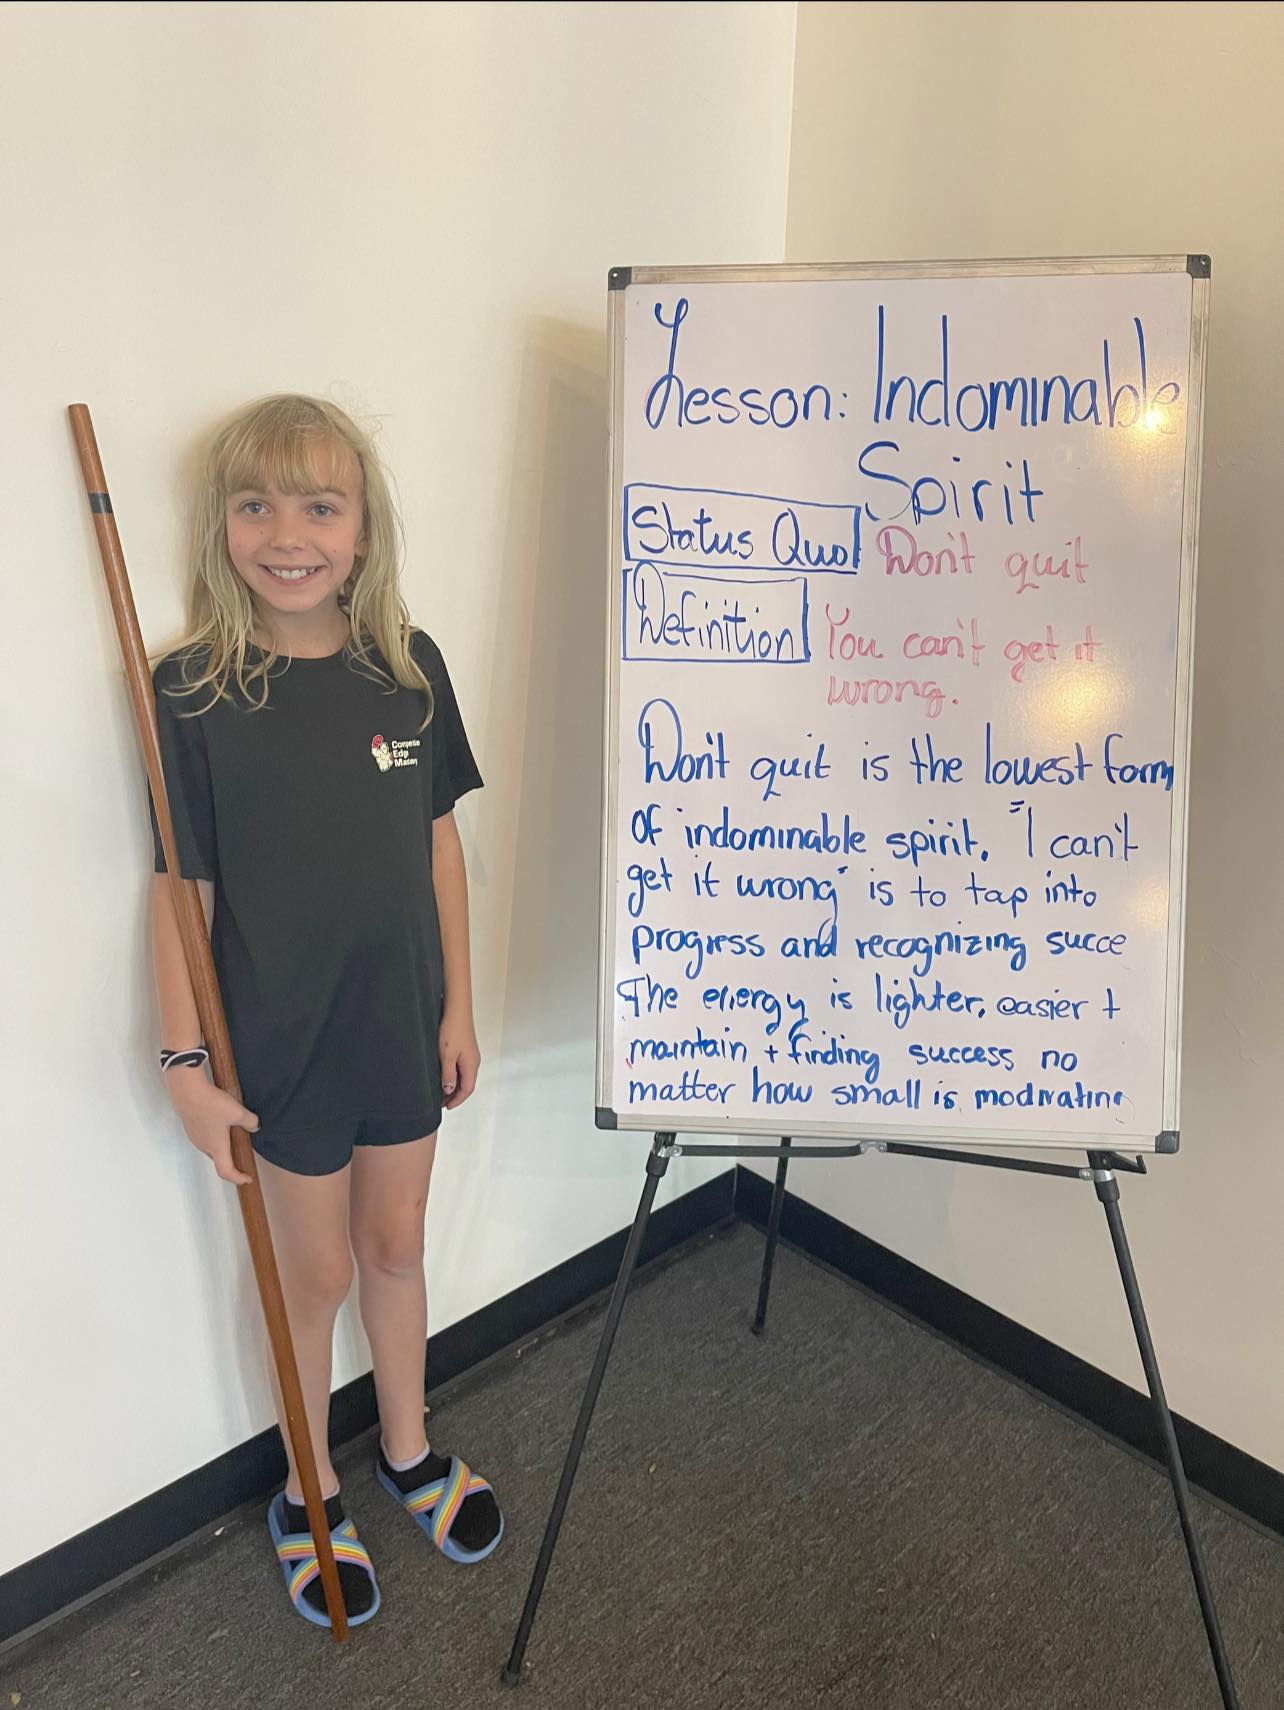 Compete
Edge
Lesson: Indominable
Spirit
Status Quo Don't quit
Definition You can't get it
wrong.
Don't quit is the lowest form
of indominable spirit. "I can't
get it wrong" is to tap into
progress and recognizing succe
The energy is lighter, easier +
maintain + finding success no
matter how small is